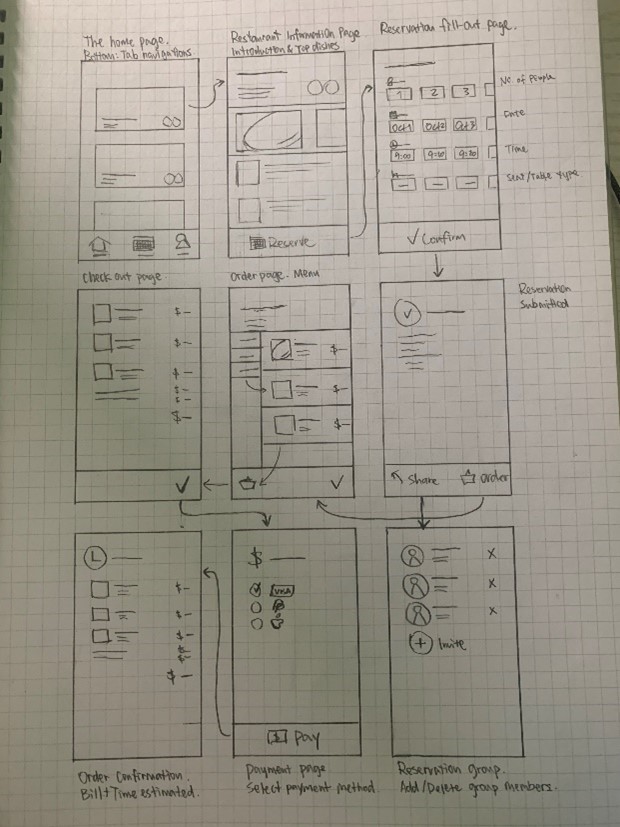 The home page.
Bottom: Tab navigations
Restaurant Information Page
Introduction & Top dishes
Reserve
Reservation fill-out page.
No. of People
1 2 3
Date
Oct1 Oct2 Oct3
Time
9:00 9:10 9:20
Seat/Table Type
✓ Confirm
Check out page
$-
$-
$-
$-
$-
$-
Order page. Menu
$-
$-
$-
Reservation
Submitted
Share
Order
L
$-
$-
$-
$-
$-
$-
Order Confirmation.
Bill + Time estimated.
$
VISA
$ Pay
Payment page
Select payment method.
X
X
X
+ Invite
Reservation group.
Add/Delete group members.